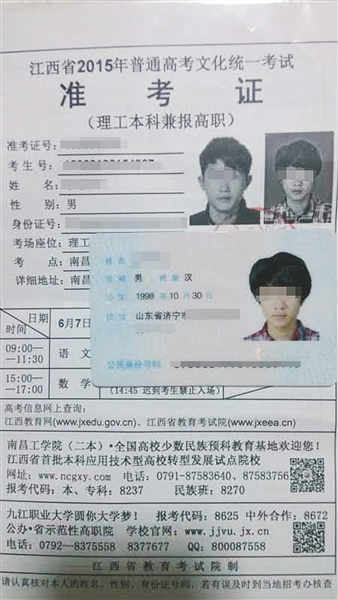 江西省2015年普通高考文化统一考试
准考证
(理工本科兼报高职)
准考证号:
考生号:
姓名:
性别: 男
身份证号:
考场座位: 理工
考点: 南昌
详细地址: 南昌
男 汉
1998 年 10 月 30 日
山东省济宁市
公民身份号码
日期
时间
6月7
09:00—
—11:30
语文
15:00—
—17:00
数学
(14:45 迟到考生禁止入场)
高考信息网上查询:
江西教育网(www.jxedu.gov.cn)、江西省教育考试院(www.jxeea.cn)
南昌工学院(二本)·全国高校少数民族预科教育基地欢迎您!
江西省首批本科应用技术型高校转型发展试点院校
网址: www.ncgxy.com 电话: 0791-87583640、87583756
报考代码: 本、专科: 8237 民族班: 8270
九江职业大学圆你大学梦! 报考代码: 8625 中外合作: 8672
公办·省示范性高职院 学校官网: www.jjvu.jx.cn
电话: 0792—8375558 8377677 QQ: 800087558
江西省教育考试院制
请认真核对本人的姓名、性别、身份证号码,若有误及时到当地招考办核查